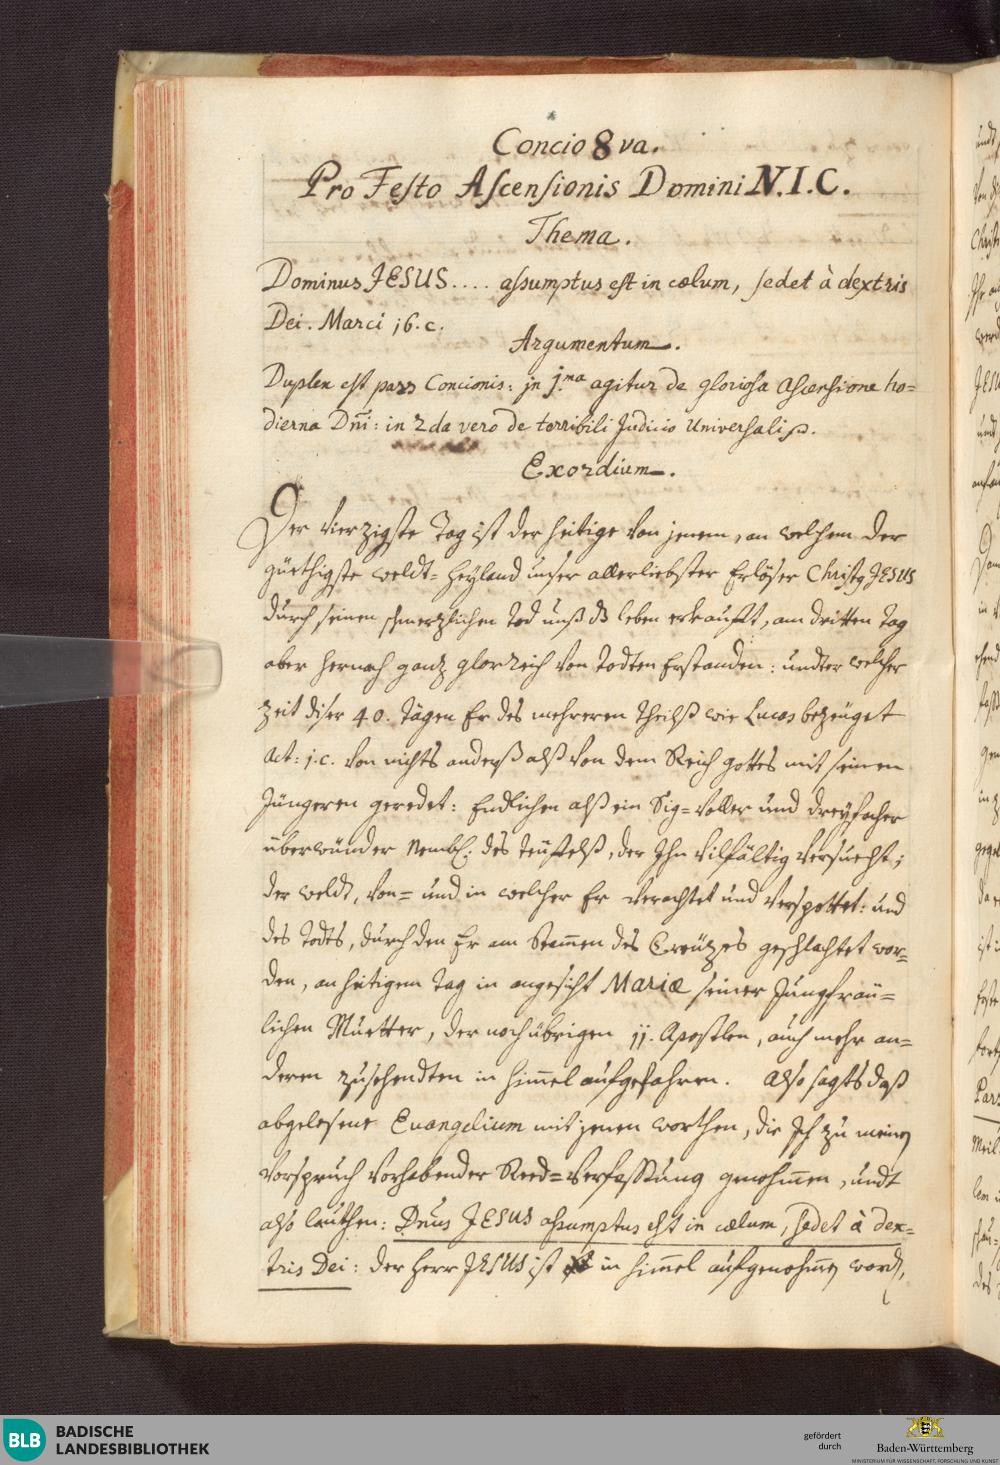 Concio 8va.
Pro Festo Ascensionis Domini N.I.C.
Thema.
Dominus JESUS .... assumptus est in cœlum, sedet à dextris
Dei. Marci 16. c.
Argumentum.
Duplex est pars Concionis: in 1.ma agitur de gloriosa Ascensione ho=
dierna Dñi: in 2da vero de terribili Judicio Universali.
Exordium.
Der Vierzigste Tag ist der heitige von jenem, an welchem der
güethigste weldt=Heyland unser allerliebster Erlöser Christq JESUS
durch seinen schmerzlichen Tod unß dß leben erkaufft, am dritten Tag
aber hernach ganz glorreich von Todten Erstanden: undter welcher
Zeit diser 40. Tägen Er des mehreren Theilß wie Lucas bezeüget
Act: 1. c. von nichts anderß alß von dem Reich gottes mit seinen
Jüngeren geredet: Endlichen alß ein Sig=voller und dreyfacher
überwünder Nembl: des teüffelß, der Ihn vilfältig versuecht;
der weldt, von= und in welcher Er verachtet und verspottet: und
des Todts, durch den Er am Stammen des Creützes geschlachtet wor=
den, an heitigem Tag in angesicht Mariæ seiner Jungfraü=
lichen Muetter, der noch übrigen 11. Apostlen, auch mehr an=
deren zusehendten in himmel aufgefahren. Also sagts daß
abgelesene Evangelium mit jenen worthen, die Ich zu meinen
Vorspruch vorhabender Reed=Verfassung genohmen, undt
also lauthen: Dnus JESUS assumptus est in cœlum, sedet à dex=
tris Dei: der Herr JESUS ist in himmel aufgenohmen word,
BLB
BADISCHE
LANDESBIBLIOTHEK
gefördert
durch
Baden-Württemberg
MINISTERIUM FÜR WISSENSCHAFT, FORSCHUNG UND KUNST